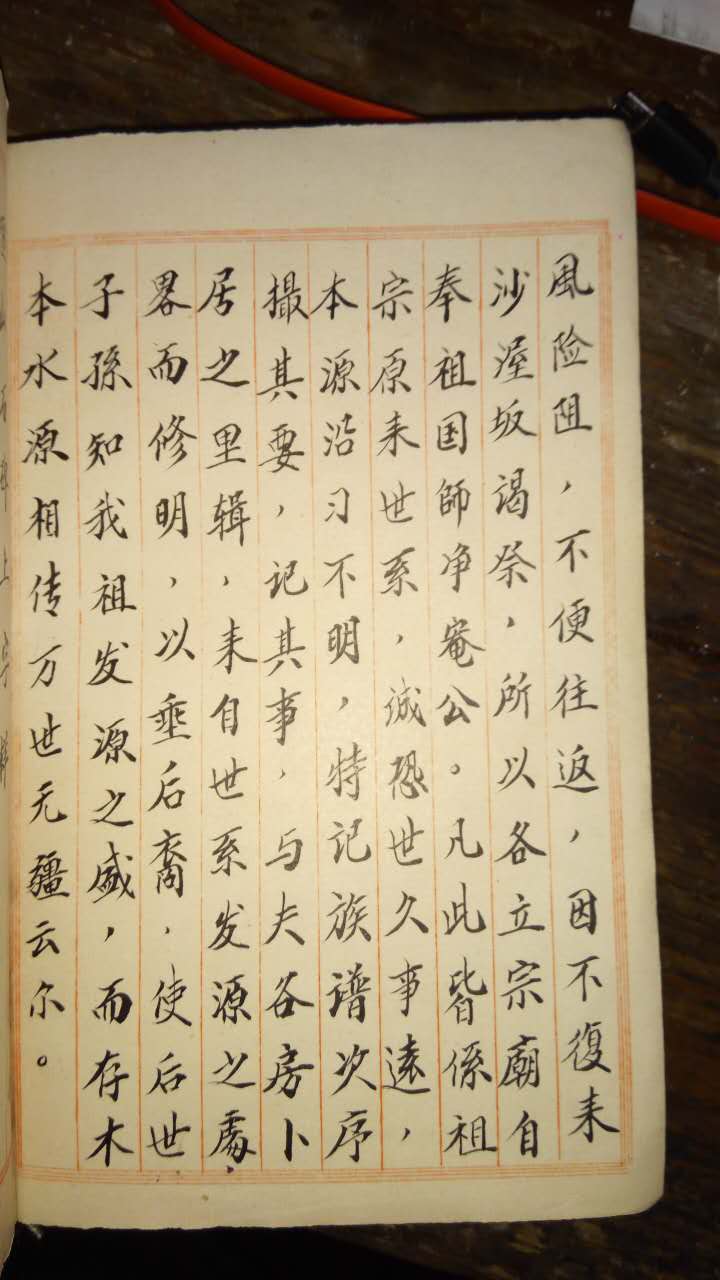 風险阻，不便往返，因不復来
沙渥坂谒祭，所以各立宗廟自
奉祖国師净菴公。凡此皆係祖
宗原来世系，诚恐世久事遠，
本源沿习不明，特记族谱次序
撮其要，记其事，与夫各房卜
居之里辑，来自世系发源之處，
畧而修明，以垂后裔，使后世
子孫知我祖发源之盛，而存木
本水源相传万世无疆云尔。